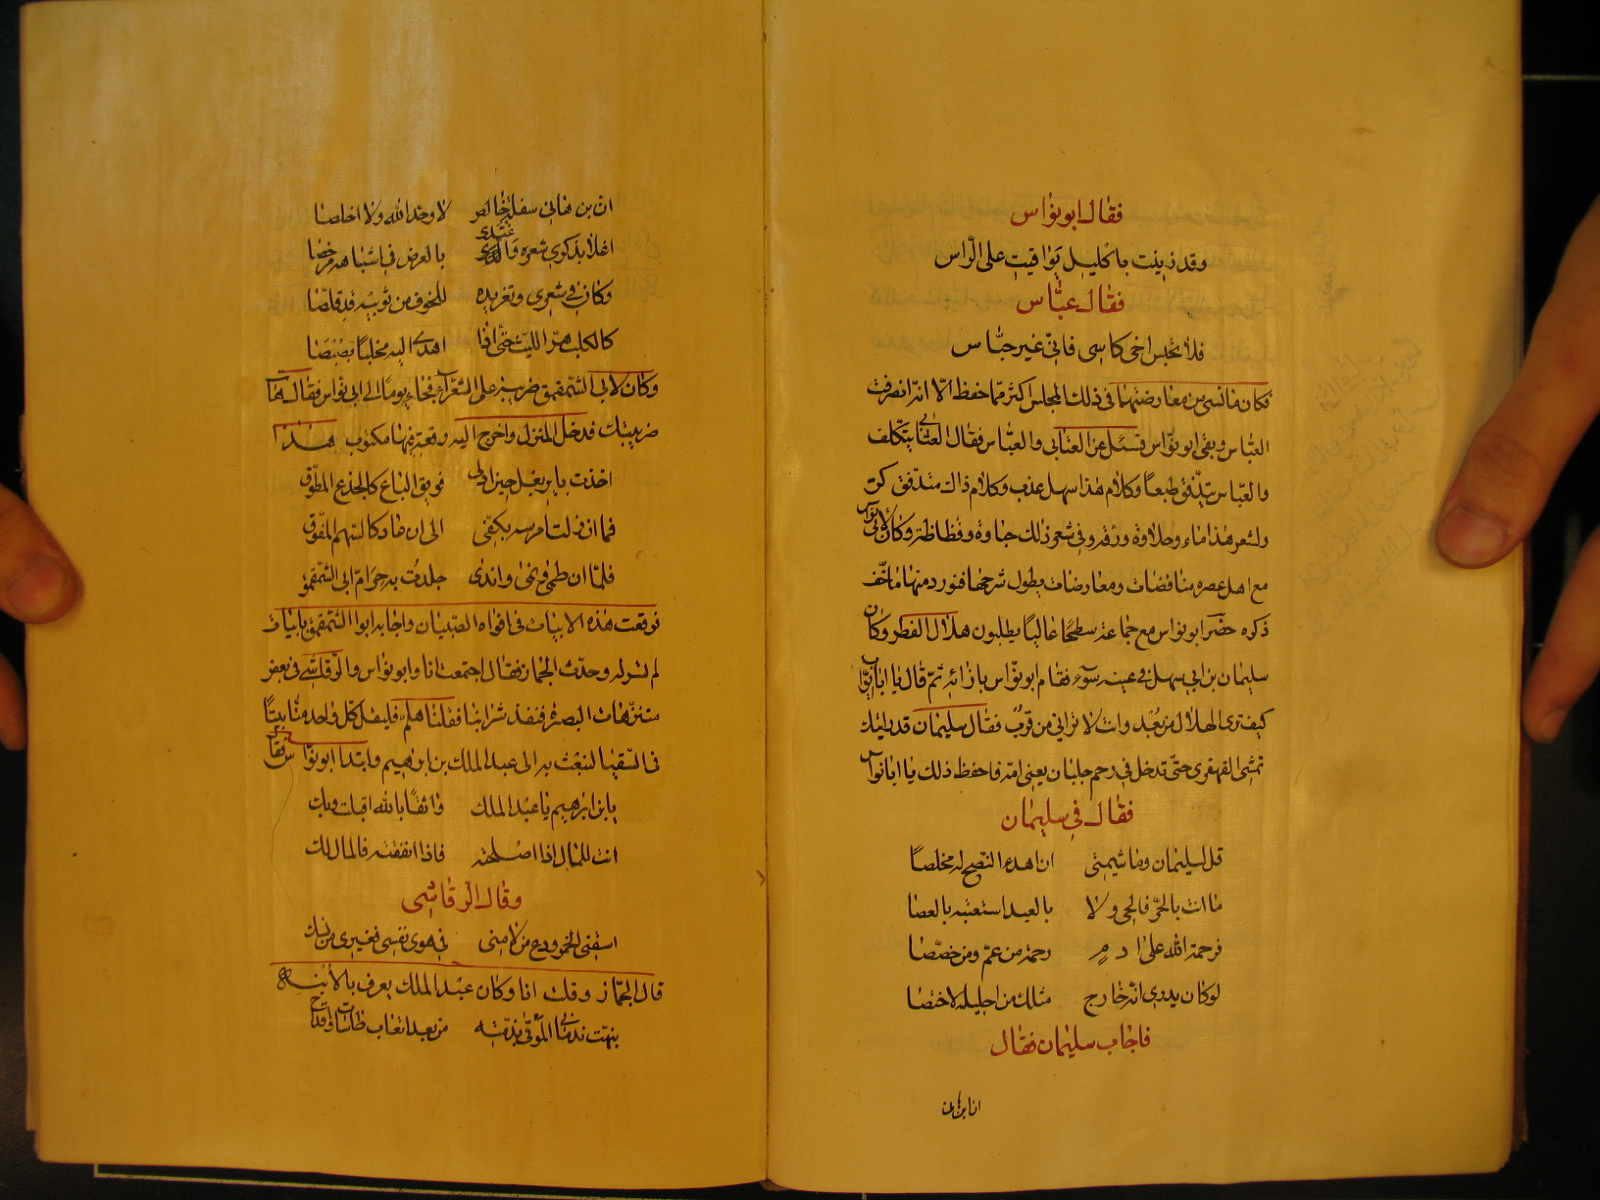 فقال ابو نواس
وقد زينت باكليل يواقيت على الراس
فقال عباس
فلا تحبس اخى كاسى فانى غير حباس
فكان ما نسى من معارضتهما فى ذلك المجلس اكثر مما حفظ الا انه انصرف
العباس وبقى ابو نواس فسئل عن العتابى والعباس فقال العتابى يتكلف
والعباس يتدفق طبعا وكلام هذا سهل عذب وكلام ذاك متدفق كز
ولشعر هذا ماء وحلاوة ورقة وفى شعر ذلك جساوة وفظاظة وكان لابى نواس
مع اهل عصره مناقضات ومعارضات يطول شرحها فنورد منها ما خف
ذكره حضر ابو نواس مع جماعة سطحا عاليا يطلبون هلال الفطر وكان
سليمان بن ابى سهل فى عينه سوء فقام ابو نواس بازائه ثم قال يا ابا ايوب
كيف ترى الهلال من بعد وانت لا ترانى من قرب فقال سليمان قد رايتك
تمشى القهقرى حتى تدخل فى رحم جلبان يعنى امه فاحفظ ذلك يا ابا نواس
فقال فى سليمان
قل لسليمان وما شيمتى ان اهدى النصح له مخلصا
ما انت بالحر فالحى ولا بالعبد استعتبه بالعصا
فرحمة الله على ادم رحمة من عم ومن خصصا
لو كان يدرى انه خارج مثلك من احليله لاختصا
فاجاب سليمان فقال
ان ابن هانى
ان بن هانى سفلة خالص لا وحد الله ولا اخلصا
اغلا بذكرى شعره واغتدى بالعرض فى اشباهه مرخصا
وكان فى شعرى وتغريده للخوف من ثوبيه قد قلصا
كالكلب هر الليث حتى اذا اهدى اليه مخلبا بصبصا
وكان لابى الشمقمق ضريبة على الشعراء فجاء يوما الى ابى نواس فقال هات
ضريبتك فدخل المنزل واخرج اليه رقعة فيها مكتوب هذا
اخذت باير بغل حين ادلى فويق الباع كالجذع المطوق
فما ان زلت امرسه بكفى الى ان صار كالسهم المفوق
فلما ان طمى ونمى واندى جلدت به حرام ابى الشمقمق
فوقعت هذه الابيات فى افواه الصبيان واجابه ابو الشمقمق بابيات
لم تسر له وحدث الجماز فقال اجتمعت انا وابو نواس والرقاشى فى بعض
متنزهات البصرة فنفذ شرابنا فقلنا هلم فليقل كل واحد منا بيتا
فى السقيا لنبعث به الى عبد الملك بن ابرهيم وابتدا ابو نواس فقال
يابن ابرهيم يا عبد الملك واثقا بالله اقبلت وبك
انت للمال اذا اصلحته فاذا انفقته فالمال لك
وقال الرقاشى
اسقنى الخمر ودع من لامنى فى هوى نفسى فغيرى من نسك
قال الجماز وقلت انا وكان عبد الملك يعرف بالابنة